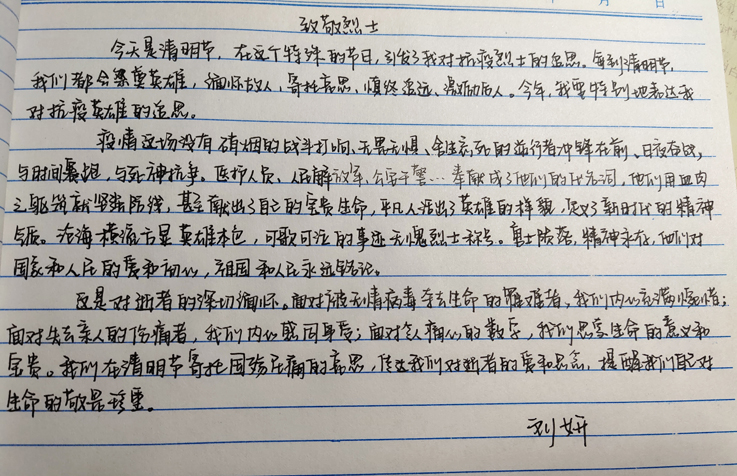 月 日
致敬烈士
今天是清明节，在这个特殊的节日，引发了我对抗疫烈士的追思。每到清明节，
我们都会祭奠英雄，缅怀故人，寄托哀思、慎终追远、激励后人。今年，我要特别地表达我
对抗疫英雄的追思。
疫情这场没有硝烟的战斗打响，无畏无惧、舍生忘死的逆行者冲锋在前、日夜奋战，
与时间赛跑，与死神抗争。医护人员、人民解放军、公安干警…奉献成了他们的代名词，他们用血肉
之躯筑就坚强防线，甚至献出了自己的宝贵生命，平凡人活出了英雄的样貌，定义了新时代的精神
气质。沧海横流方显英雄本色，可歌可泣的事迹无愧烈士称号。勇士陨落，精神永存，他们对
国家和人民的爱和初心，祖国和人民永远铭记。
这是对逝者的深切缅怀。面对被无情病毒夺去生命的罹难者，我们内心充满惋惜；
面对失去亲人的伤痛者，我们内心感同身受；面对令人痛心的数字，我们思索生命的意义和
宝贵。我们在清明节寄托国殇民痛的哀思，传达我们对逝者的爱和思念，提醒我们自己对
生命的敬畏珍重。
刘妍